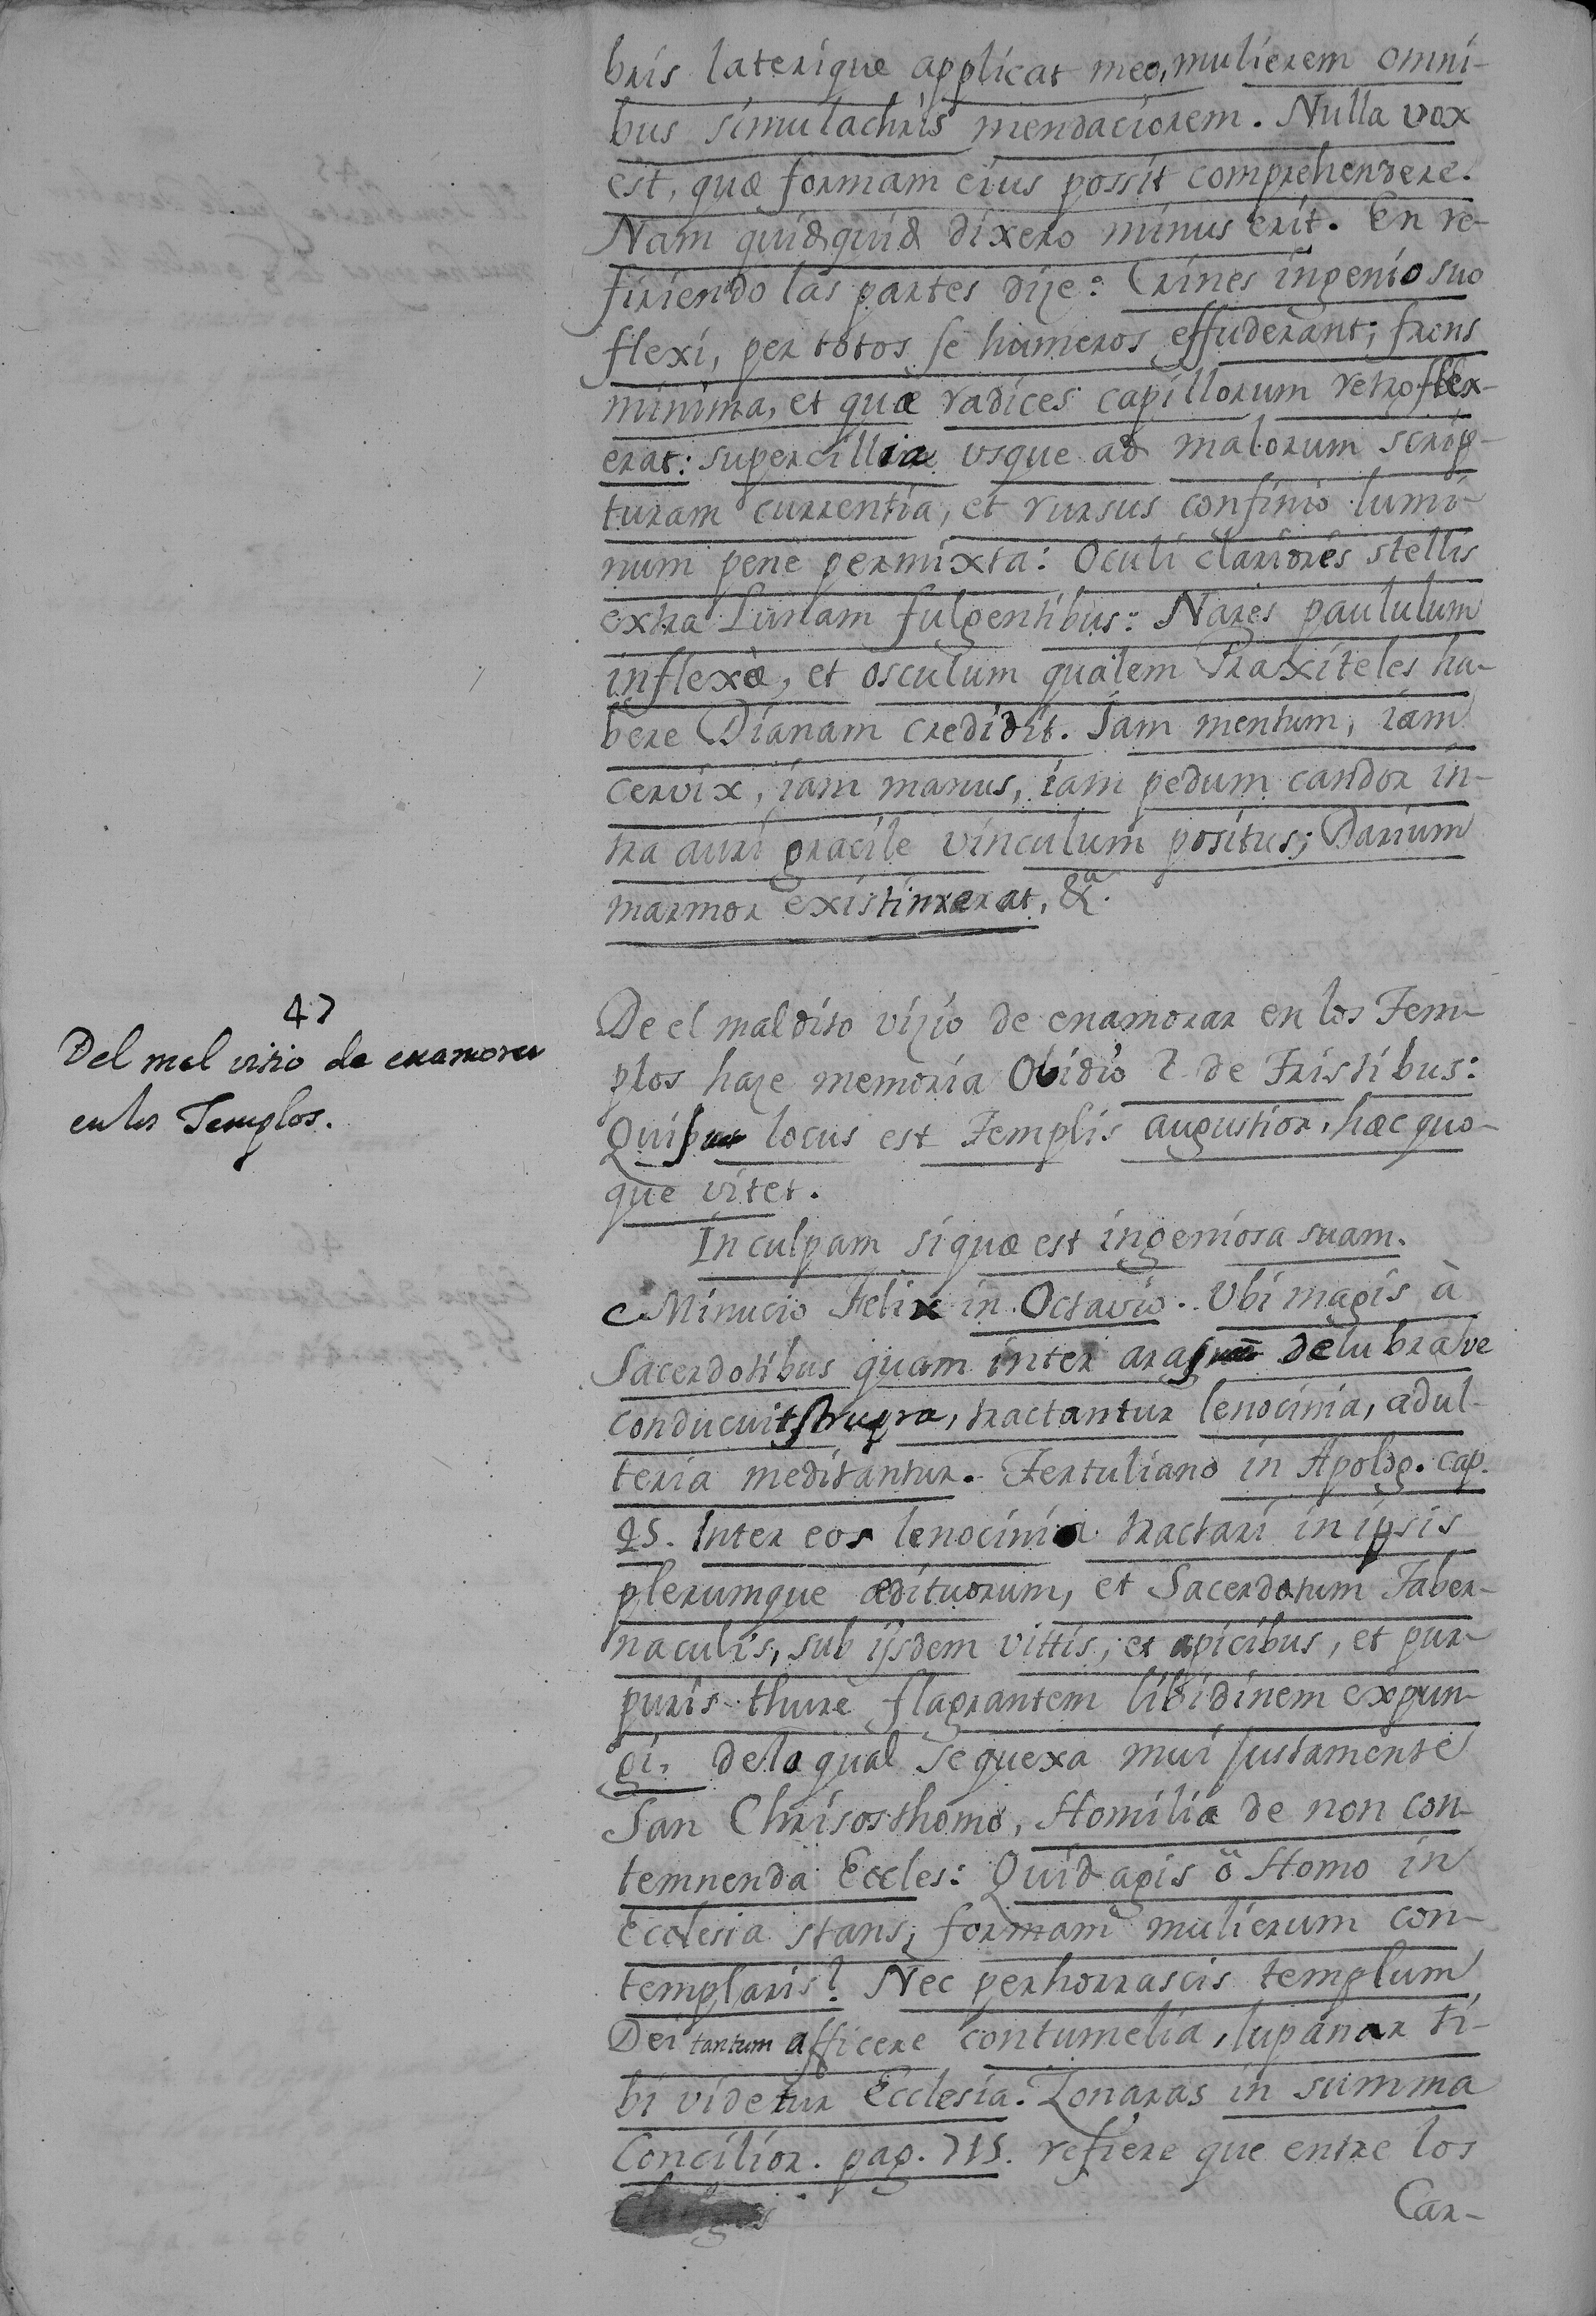 bris laterique applicat meo, mulierem omni-
bus simulachris mendaciorem. Nulla vox
est, quæ formam eius possit comprehendere.
Nam quidquid dixero minus erit. En re-
firiendo las partes dize: Crines ingenio suo
flexi, per totos se humeros effuderant; frons
minima, et quæ radices capillorum retroflex-
erat: supercillia usque ad malorum scrip-
turam currentia, et rursus confinio lumi-
num pene permixta: Oculi clariores stellis
extra Lunam fulgentibus: Nares paululum
inflexæ, et osculum qualem Praxiteles ha-
bere Dianam credidit. Iam mentum, iam
cervix, iam manus, iam pedum candor in-
tra auri gracile vinculum positus; Darium
marmor existinxerat, &a.
47
Del mal visio de enamorar
en los Templos.
De el maldito vizio de enamorar en los Tem-
plos haze memoria Obidio 2 de Tristibus:
Quis locus est Templis augustior, hæc quo-
que vitet.
In culpam siquæ est ingeniosa suam.
Minucio Felix in Octavio. Ubi magis à
Sacerdotibus quam inter aras delubrave
conducuit strupra, tractantur lenocinia, adul-
teria meditantur. Tertuliano in Apolog. cap.
25. Inter eos lenocinia tractari in ipsis
plerumque ædituorum, et Sacerdotum Taber-
naculis, sub ijsdem vittis, et apicibus, et pur-
puris thure flagrantem libidinem expun-
gi. de la qual se quexa mui justamente
San Chrisosthomo, Homilia de non con-
temnenda Eccles: Quid agis ö Homo in
Ecclesia stans, formam mulierum con-
templaris? Nec perhorrascis templum
Dei tantum afficere contumelia, lupanar ti-
bi videtur Ecclesia. Zonaras in summa
Concilior. pag. 715. refiere que entre los
Car-